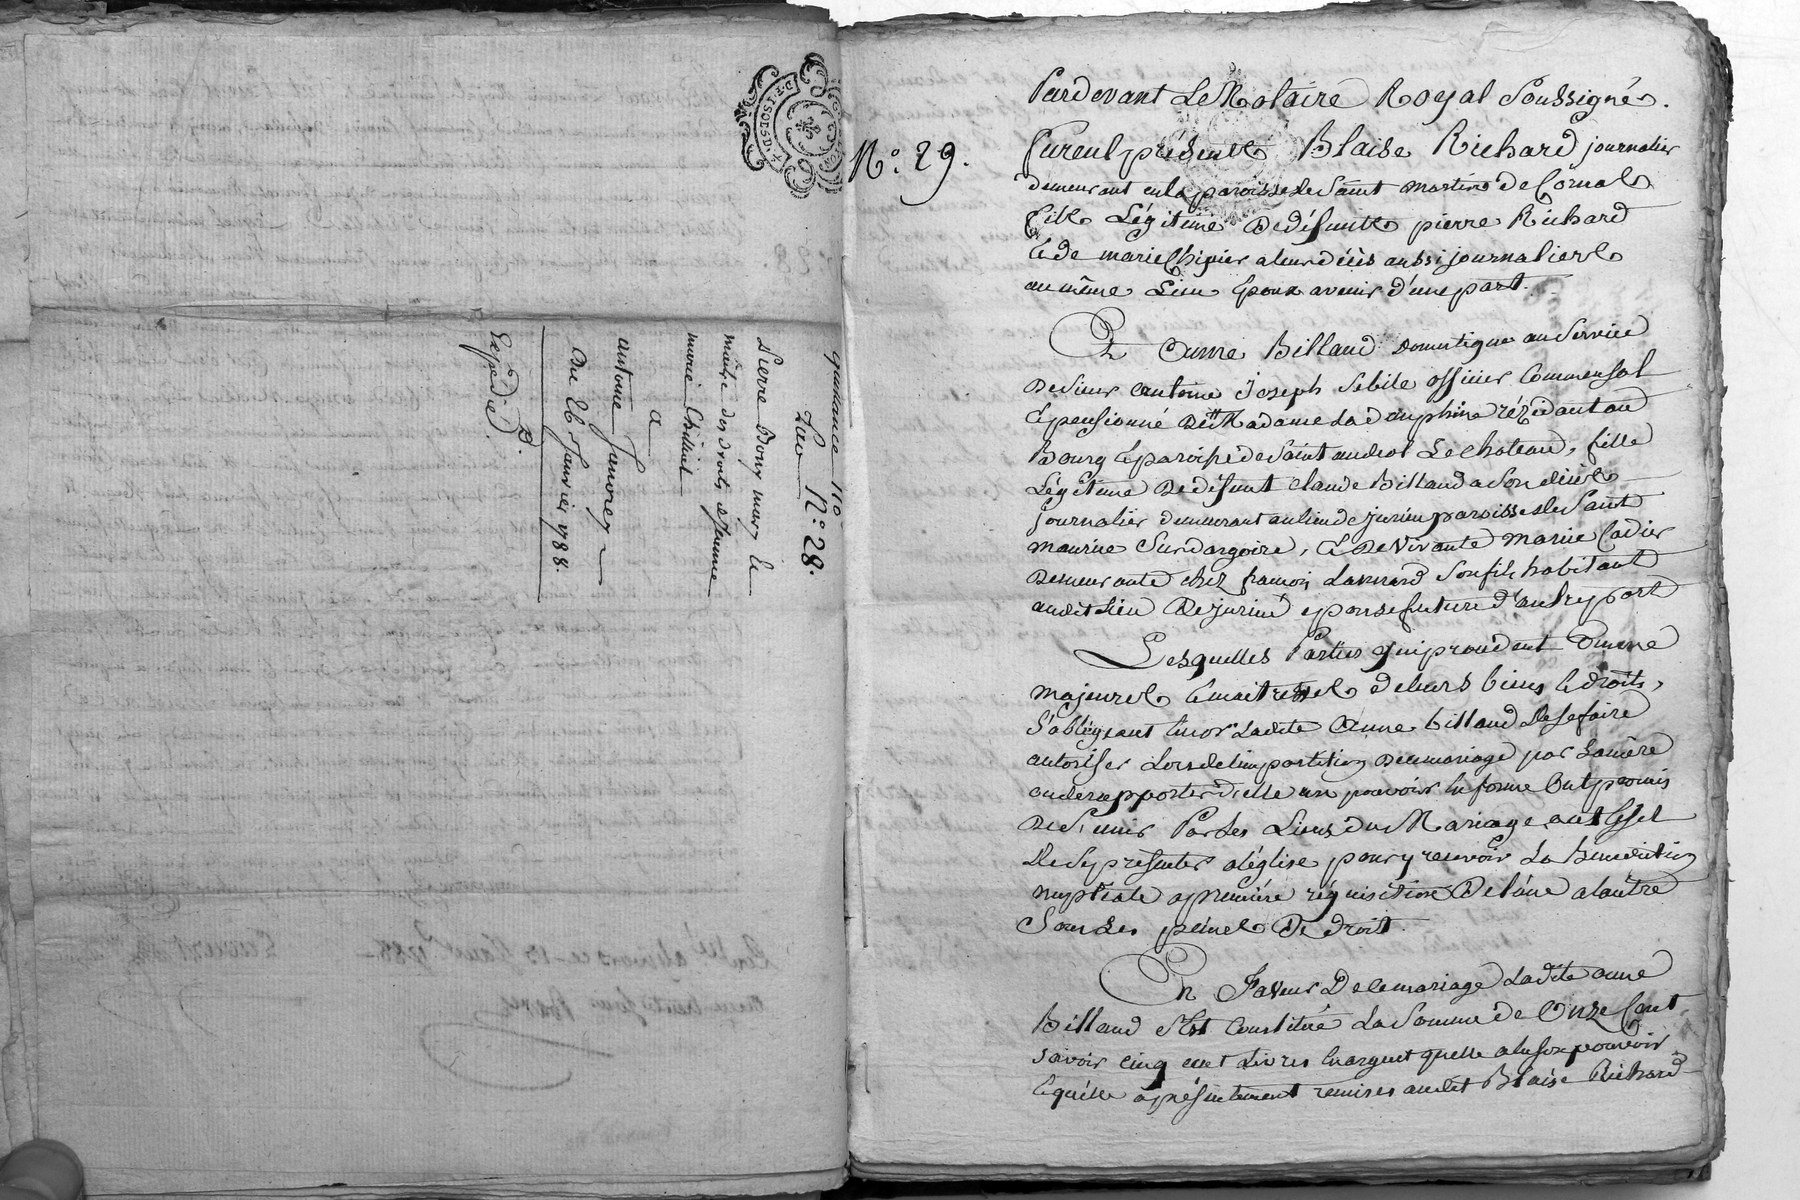 quittance 110
Lieu N°. 28.
Pierre Bouy mary &
maitre des droits de Jeanne
marie Chillet
a
antoine Janorey
Du 26 Janvier 1788.
Expédié.
N°. 29.
Pardevant Le Notaire Royal Soussigné.
furent présents Blaise Richard journalier
demeurant en la paroisse de Saint martin de Cornas
fils Légitime de défunts pierre Richard
& de marie Chipier a leur décès aussi journaliers
au même Lieu Epoux avenir d'une part.
Et Anne Billaud Domestique au Service
de Sieur antoine Joseph Sebile officier Commensal
& pensionné de Madame La dauphine rézidant au
Bourg & paroisse de Saint andéol Le chateau, fille
Légitime de défunt Claude Billaud a Son décès
journalier demeurant au lieu de Jurieu paroisse de Saint
maurice Sur dargoire, & de vivante marie Cadier
demeurante chez françois Lasnard Son fils habitant
audit Lieu de Jurieu epouse future d'autre part
Lesquelles Parties qui procedent comme
majeures & maitresses de leurs biens & droits,
S'obligeant encor Ladite Anne billaud de Se faire
autoriser Lors de l'impartition de ce mariage par Sa mère
ou de rapporter d'elle un pouvoir en forme Ont promis
de S'unir Par Les Liens du Mariage, a cet Effet
de Se présenter a l'église pour y recevoir La Benediction
nuptiale a première réquisition de l'une a l'autre
Sous Les peines De droit.
En faveur De ce mariage Ladite anne
Billaud S'est Constitué La Somme de Onze Cent,
savoir cinq cent Livres En argent quelle a en son pouvoir
& quelle a présentement remises audit Blaise Richard